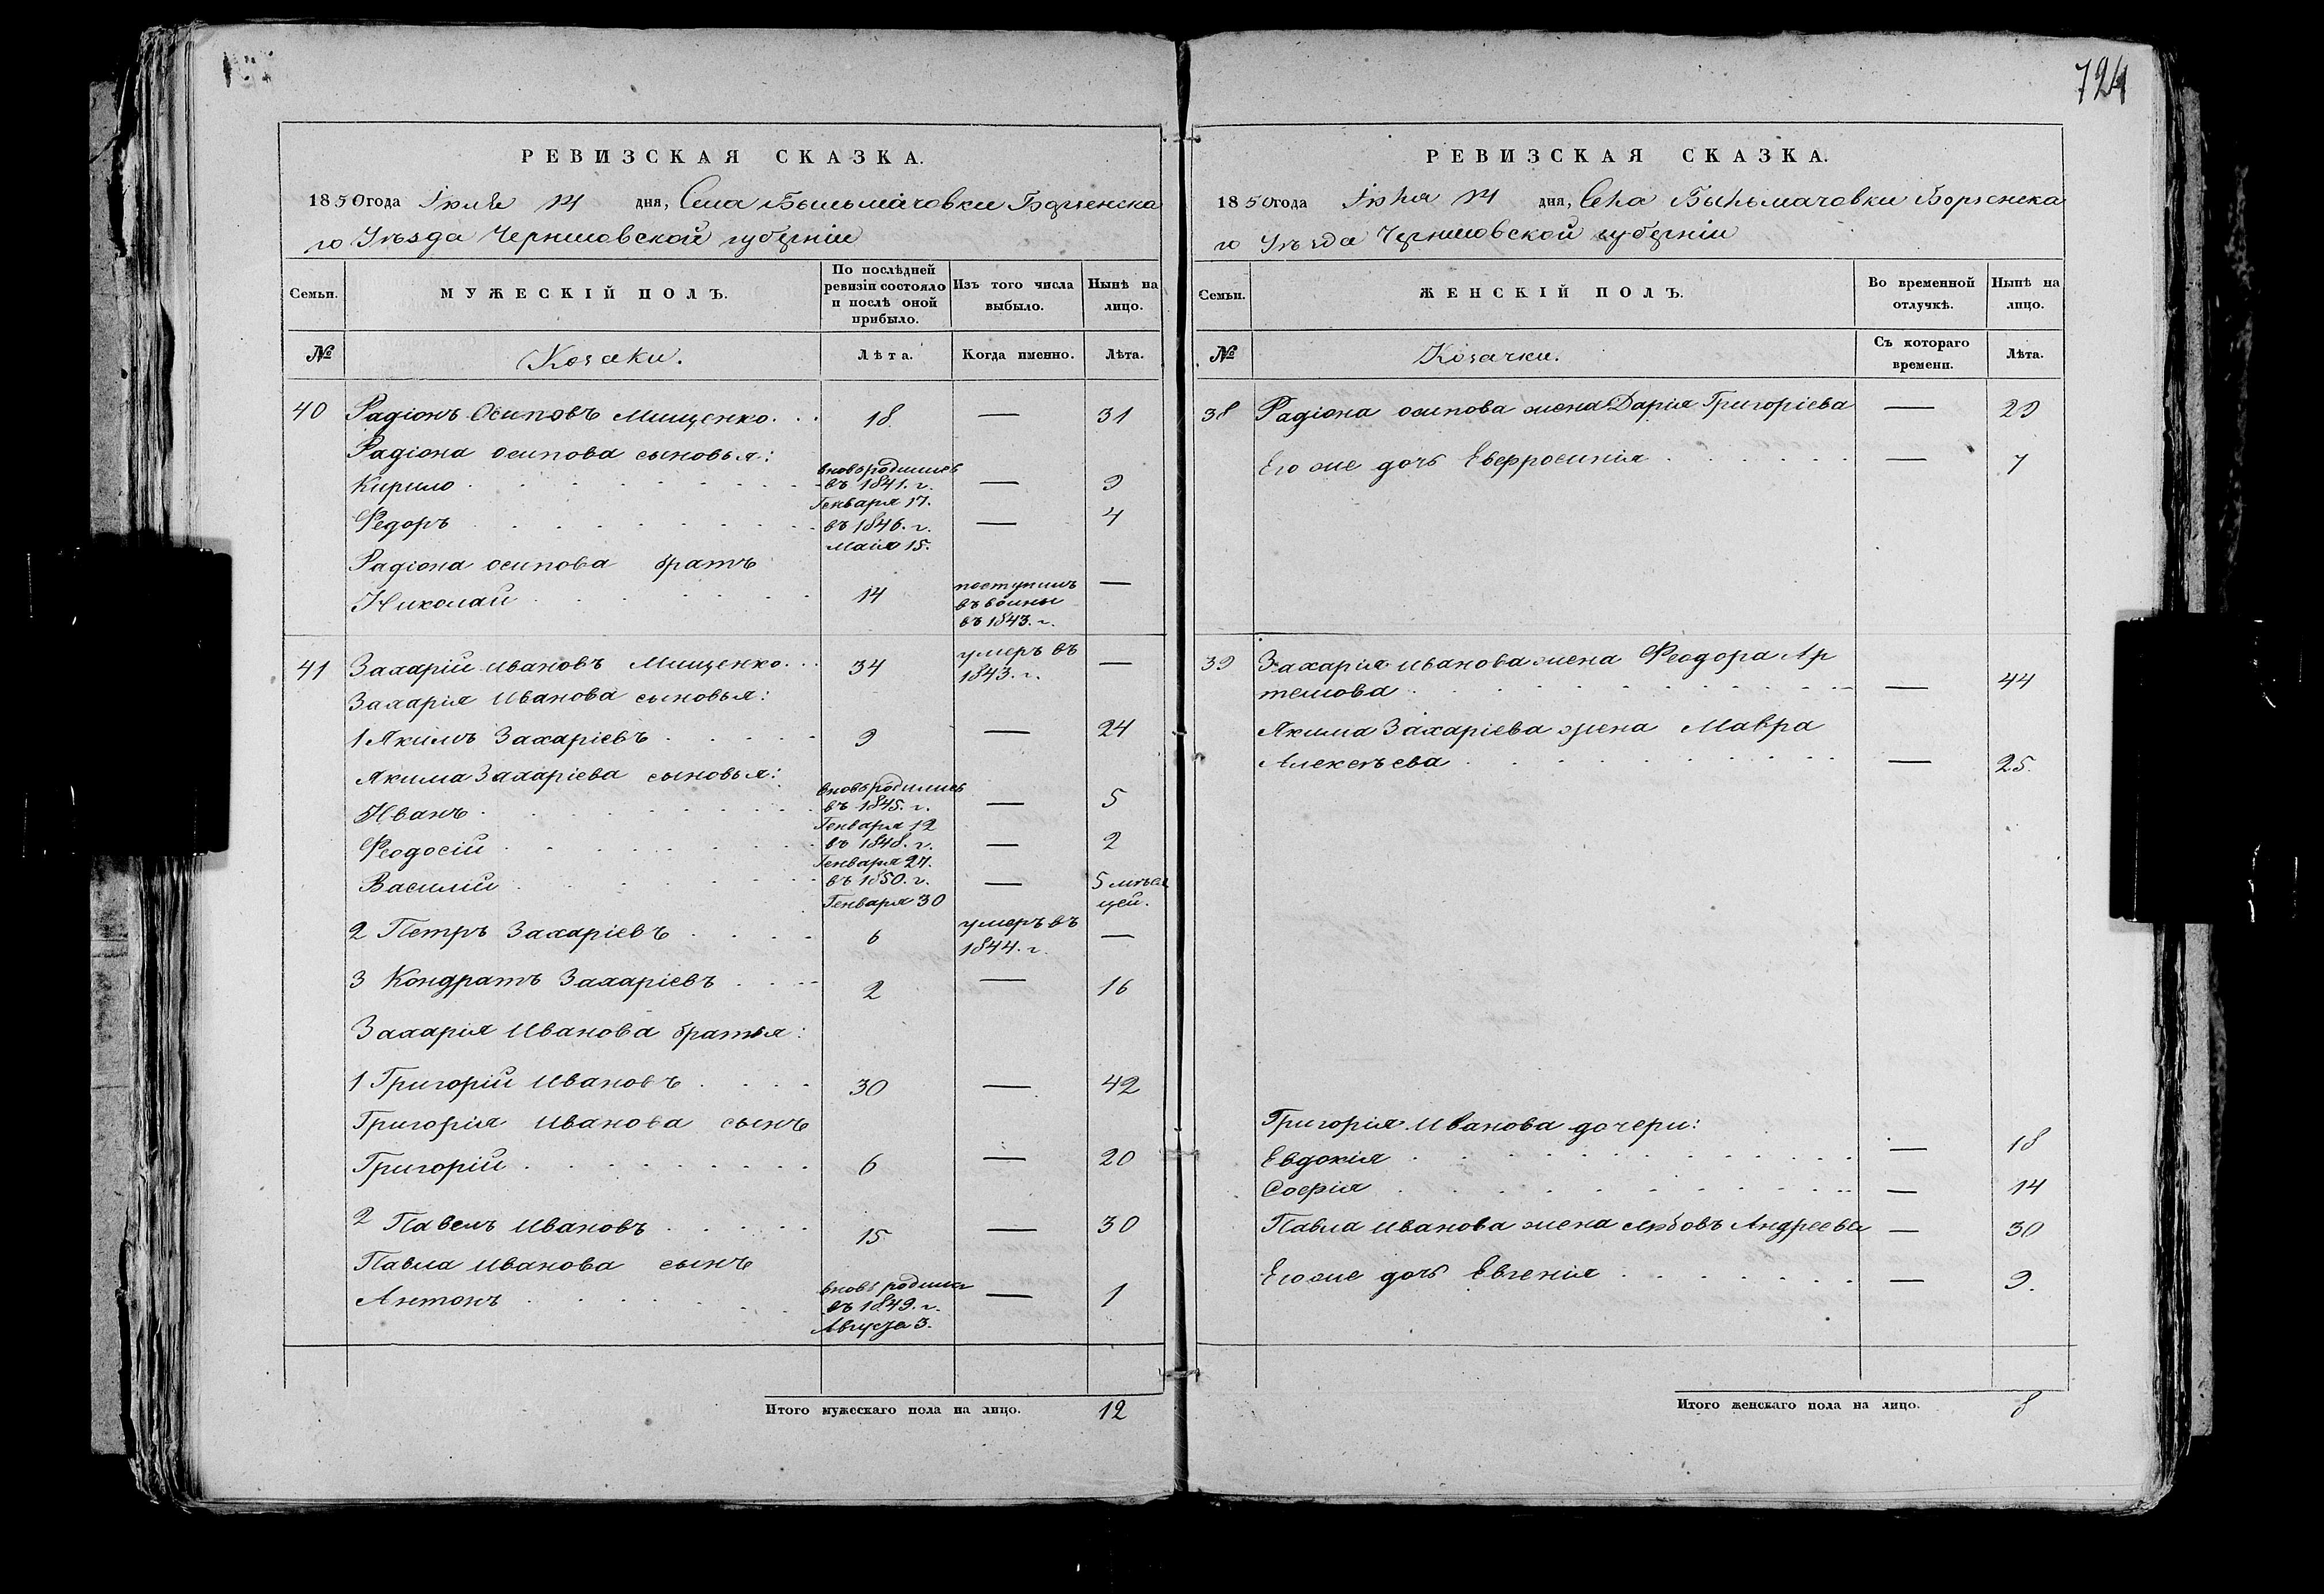 724
РЕВИЗСКАЯ СКАЗКА.
1850 года Іюля 14 дня, Села Быльмачовки Борзенска
го Уѣзда Черниговской губерніи
Семьи. МУЖЕСКІЙ ПОЛЪ. По послѣдней ревизіи состояло и послѣ оной прибыло. Изъ того числа выбыло. Нынѣ на лицо.
№ Козаки. Лѣта. Когда именно. Лѣта.
40 Радіонъ Осиповъ Мищенко. 18 — 31
Радіона Осипова сыновья:
Кирило вновь родились въ 1841. г. Генваря 17. — 9
Федоръ въ 1846. г. Маия 15. — 4
Радіона Осипова братъ
Николай 14 поступилъ въ воины въ 1843. г. —
41 Захарій Ивановъ Мищенко. 34 умеръ въ 1843. г. —
Захарія Иванова сыновья:
1 Якимъ Захаріевъ 9 — 24
Якима Захаріева сыновья:
Иванъ вновь родились въ 1845. г. Генваря 12 — 5
Феодосій въ 1848. г. Генваря 27. — 2
Василій въ 1850. г. Генваря 30 — 5 мѣся
цей.
2 Петръ Захаріевъ 6 умеръ въ 1844. г. —
3 Кондратъ Захаріевъ 2 — 16
Захарія Иванова братья:
1 Григорій Ивановъ 30 — 42
Григорія Иванова сынъ
Григорій 6 — 20
2 Павелъ Ивановъ 15 — 30
Павла Иванова сынъ
Антонъ вновь родился въ 1849. г. Августа 3. — 1
Итого мужескаго пола на лицо. 12
РЕВИЗСКАЯ СКАЗКА.
1850 года Іюля 14 дня, Села Быльмачовки Борзенска
го Уѣзда Черниговской губерніи
Семьи. ЖЕНСКІЙ ПОЛЪ. Во временной отлучкѣ. Нынѣ на лицо.
№ Козачки. Съ котораго времени. Лѣта.
38 Радіона Осипова жена Дарія Григоріева — 29
Его же дочь Евфросинія — 7
39 Захарія Иванова жена Феодора Ар
темова — 44
Якима Захаріева жена Мавра
Алексѣева — 25.
Григорія Иванова дочери:
Евдокія — 18
Софія — 14
Павла Иванова жена Любовъ Андреева — 30
Его же дочь Евгенія — 9.
Итого женскаго пола на лицо. 8